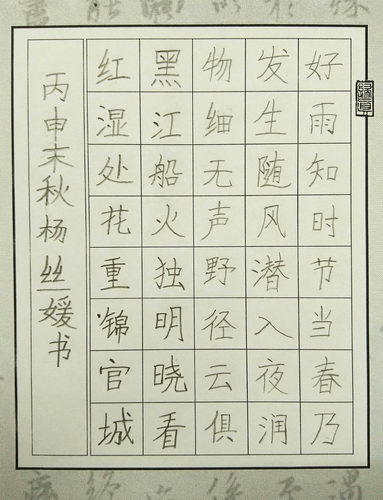 好雨知时节当春乃
发生随风潜入夜润
物细无声野径云俱
黑江船火独明晓看
红湿处花重锦官城
丙申末秋杨丝媛书